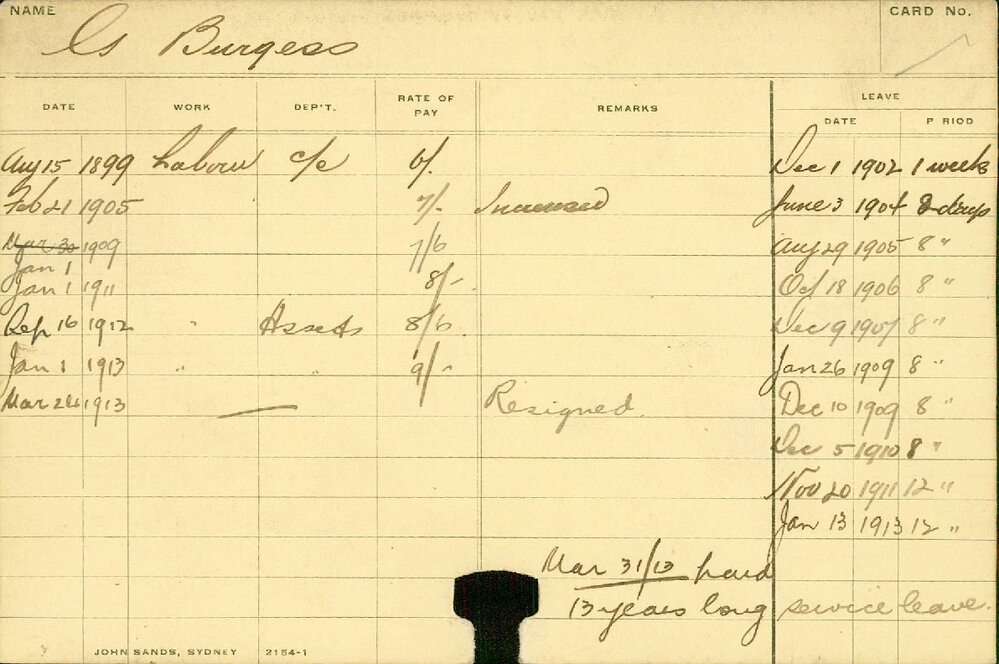 NAME
G Burgess
CARD No.
DATE WORK DEP'T. RATE OF PAY REMARKS LEAVE
DATE P RIOD
Aug 15 1899 Labour c/e 6/. Dec 1 1902 1 week
Feb 21 1905 7/- Increased June 3 1904 8 days
Mar 30 1909 7/6 Aug 29 1905 8 "
Jan 1
Jan 1 1911 8/- Oct 18 1906 8 "
Sep 16 1912 " Assets 8/6 Dec 9 1907 8 "
Jan 1 1913 " " 9/- Jan 26 1909 8 "
Mar 24 1913 — Resigned. Dec 10 1909 8 "
Dec 5 1910 8 "
Nov 20 1911 12 "
Jan 13 1913 12 "
Mar 31/13 paid
13 years long service leave.
JOHN SANDS, SYDNEY 2154-1